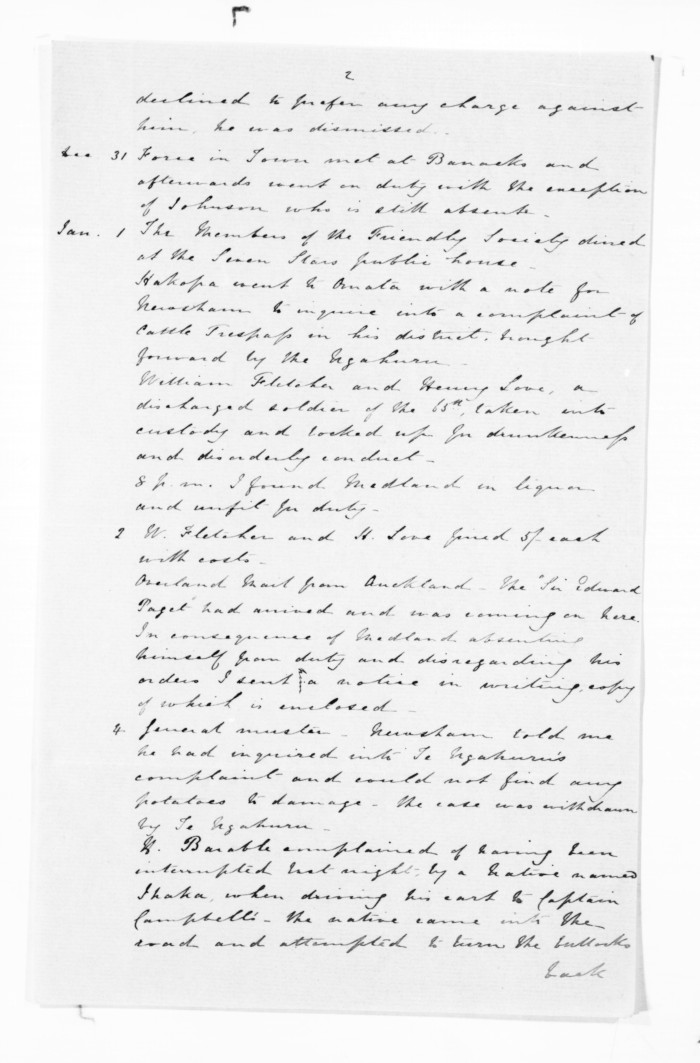 2
declined to prefer any charge against
him, he was dismissed.
Dec 31 Force in Town met at Barracks and
afterwards went on duty with the exception
of Johnson who is still absent.
Jan. 1 The Members of the Friendly Society dined
at the Seven Stars public house.
Hakopa went to Omata with a note for
Newsham to inquire into a complaint of
Cattle Trespass in his district, brought
forward by the Ngahuru.
William Fletcher and Henry Love, a
discharged soldier of the 65th, taken into
custody and locked up for drunkenness
and disorderly conduct.
8 p.m. I found Medland in liquor
and unfit for duty.
2 W. Fletcher and H. Love fined 5/- each
with costs.
Overland Mail from Auckland - The "Sir Edward
Paget" had arrived and was coming on here.
In consequence of Medland absenting
himself from duty and disregarding his
orders I sent a notice in writing, copy
of which is enclosed.
4 General muster - Newsham told me
he had inquired into Te Ngahuru's
complaint and could not find any
potatoes to damage - the case was withdrawn
by Te Ngahuru.
complained of having been
interrupted last night, by a Native named
Ihaka, when driving his cart to Captain
Campbell's - the native came into the
road and attempted to turn the bullocks
back